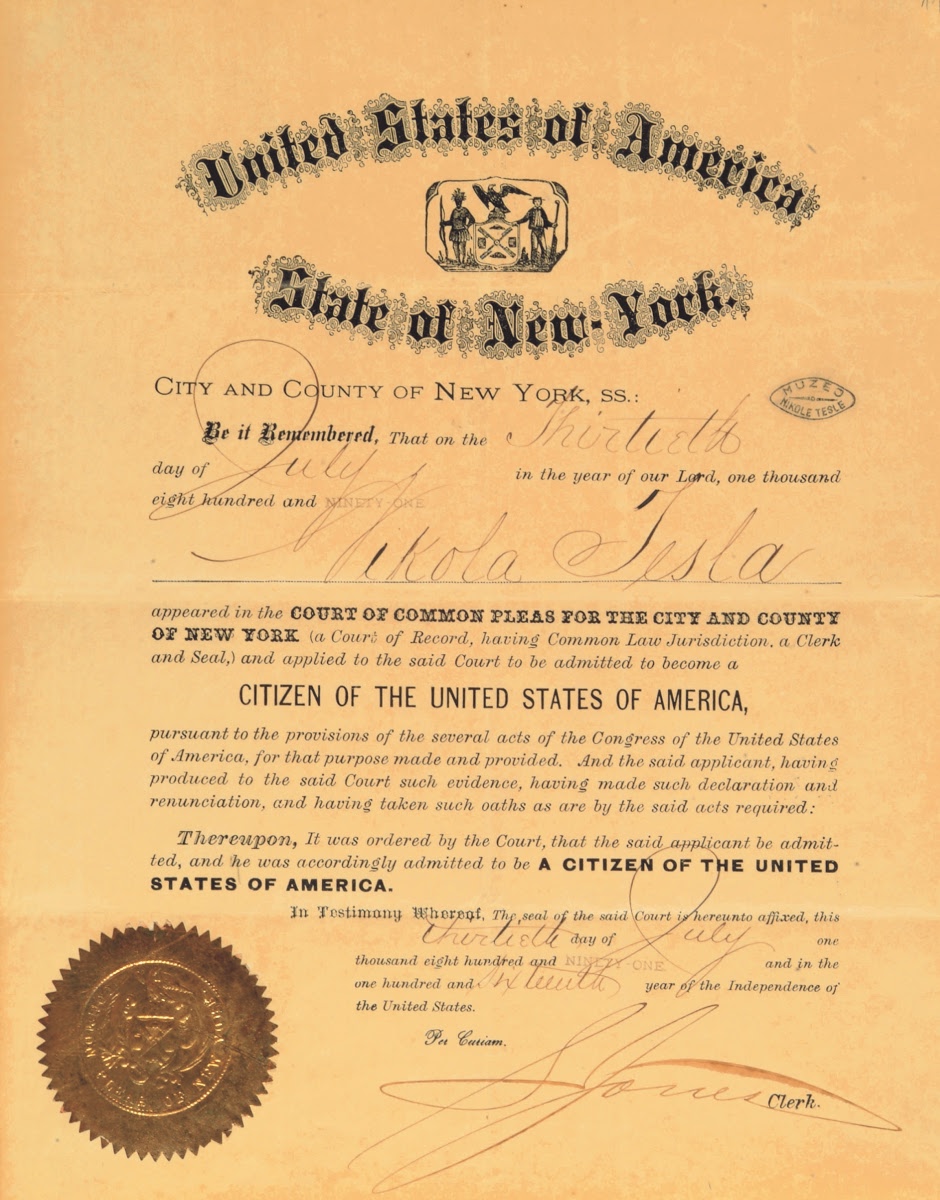 United States of America
State of New-York.
CITY AND COUNTY OF NEW YORK, SS.:
MUZEJ
NIKOLE TESLE
Be it Remembered, That on the Thirtieth
day of July in the year of our Lord, one thousand
eight hundred and NINETY-ONE
Nikola Tesla
appeared in the COURT OF COMMON PLEAS FOR THE CITY AND COUNTY
OF NEW YORK (a Court of Record, having Common Law Jurisdiction, a Clerk
and Seal,) and applied to the said Court to be admitted to become a
CITIZEN OF THE UNITED STATES OF AMERICA,
pursuant to the provisions of the several acts of the Congress of the United States
of America, for that purpose made and provided. And the said applicant, having
produced to the said Court such evidence, having made such declaration and
renunciation, and having taken such oaths as are by the said acts required:
Thereupon, It was ordered by the Court, that the said applicant be admit-
ted, and he was accordingly admitted to be A CITIZEN OF THE UNITED
STATES OF AMERICA.
In Testimony Whereof, The seal of the said Court is hereunto affixed, this
thirtieth day of July one
thousand eight hundred and NINETY-ONE and in the
one hundred and sixteenth year of the Independence of
the United States.
Per Curiam.
S Jones
Clerk.